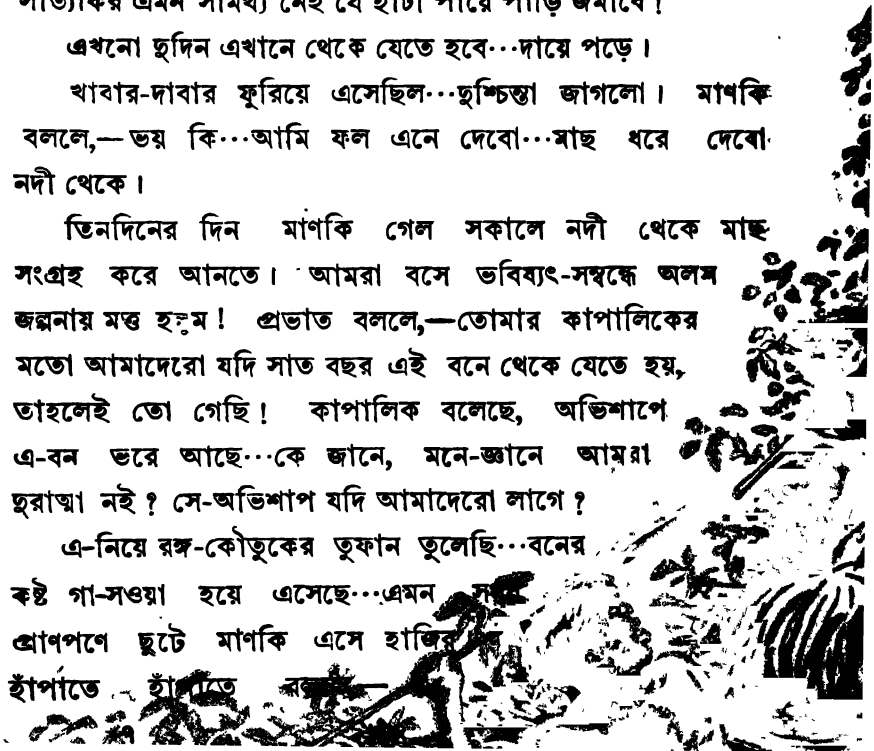 সাত্যকির এমন সামর্থ্য নেই যে হাঁটা পায়ে পাড়ি জমাবে !
এখনো দুদিন এখানে থেকে যেতে হবে···দায়ে পড়ে ।
খাবার-দাবার ফুরিয়ে এসেছিল···দুশ্চিন্তা জাগলো । মাণকি
বললে,—ভয় কি···আমি ফল এনে দেবো···মাছ ধরে দেবো
নদী থেকে ।
তিনদিনের দিন মাণকি গেল সকালে নদী থেকে মাছ
সংগ্রহ করে আনতে । আমরা বসে ভবিষ্যৎ-সম্বন্ধে অলস
জল্পনায় মত্ত হলুম ! প্রভাত বললে,—তোমার কাপালিকের
মতো আমাদেরো যদি সাত বছর এই বনে থেকে যেতে হয়,
তাহলেই তো গেছি ! কাপালিক বলেছে, অভিশাপে
এ-বন ভরে আছে···কে জানে, মনে-জ্ঞানে আমরা
দুরাত্মা নই ? সে-অভিশাপ যদি আমাদেরো লাগে ?
এ-নিয়ে রঙ্গ-কৌতুকের তুফান তুলেছি···বনের
কষ্ট গা-সওয়া হয়ে এসেছে···এমন
প্রাণপণে ছুটে মাণকি এসে হাজির
হাঁপাতে হাঁপাতে